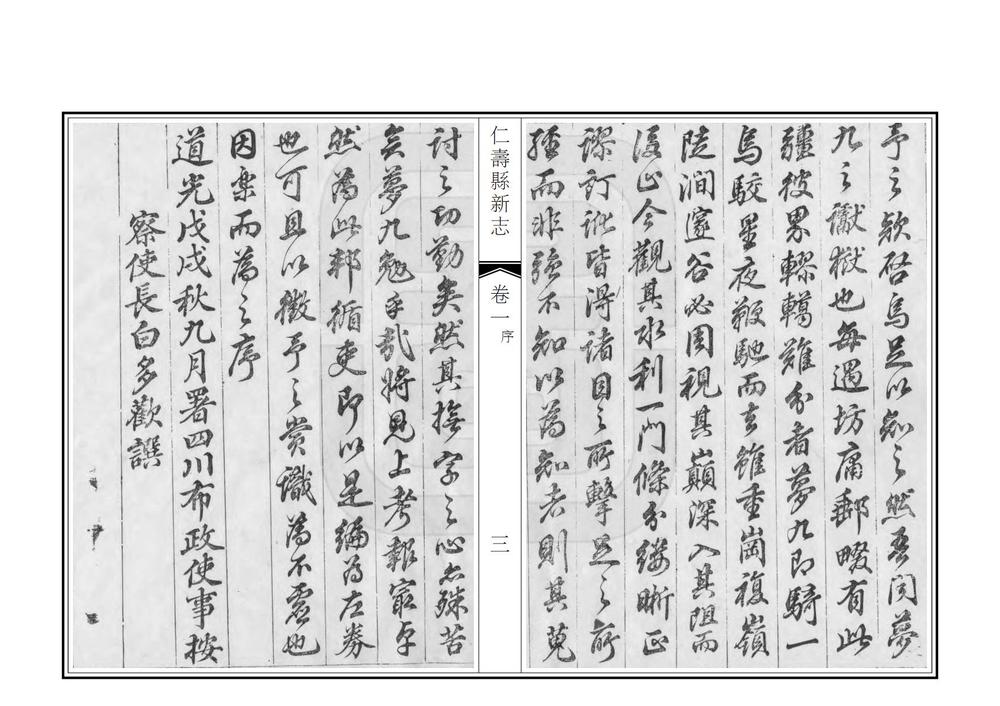 予之欵啓烏足以知之然吾聞夢
九之讞獄也每遇坊庸郵畷有此
疆彼界轇轕難分者夢九即騎一
馬駮星夜鞭馳而去雖重崗複嶺
陡澗邃谷必周視其巔深入其阻而
後止今觀其水利一門條分縷晰正
謬訂訛皆得諸目之所擊足之所
經而非強不知以為知者則其蒐
仁壽縣新志
卷一
序
三
討之功勤矣然其撫字之心亦殊苦
矣夢九勉乎哉將見上考報最卓
然為此邦循吏即以是編為左券
也可且以徵予之賞識為不虛也
因樂而為之序
道光戊戌秋九月署四川布政使事按
察使長白多歡譔